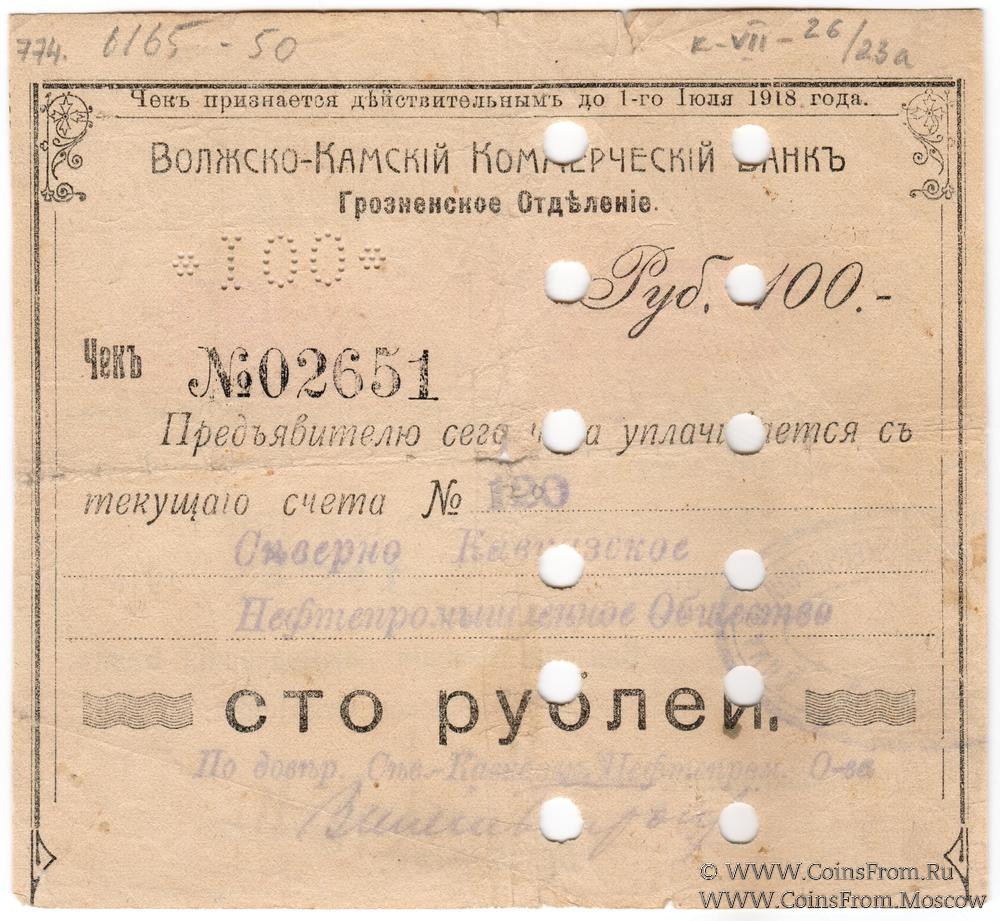 774. 6165 - 50 к-VII-26/23а
Чекъ признается дѣйствительнымъ до 1-го Іюля 1918 года.
Волжско-Камскій Коммерческій Банкъ
Грозненское Отдѣленіе.
*100*
Руб. 100.-
Чекъ №02651
Предъявителю сего чека уплачивается съ
текущаго счета № 190
Сѣверно Кавказское
Нефтепромышленное Общество
сто рублей.
По довѣр. Сѣв.-Кавказск. Нефтепром. О-ва
© WWW.CoinsFrom.Ru
WWW.CoinsFrom.Moscow